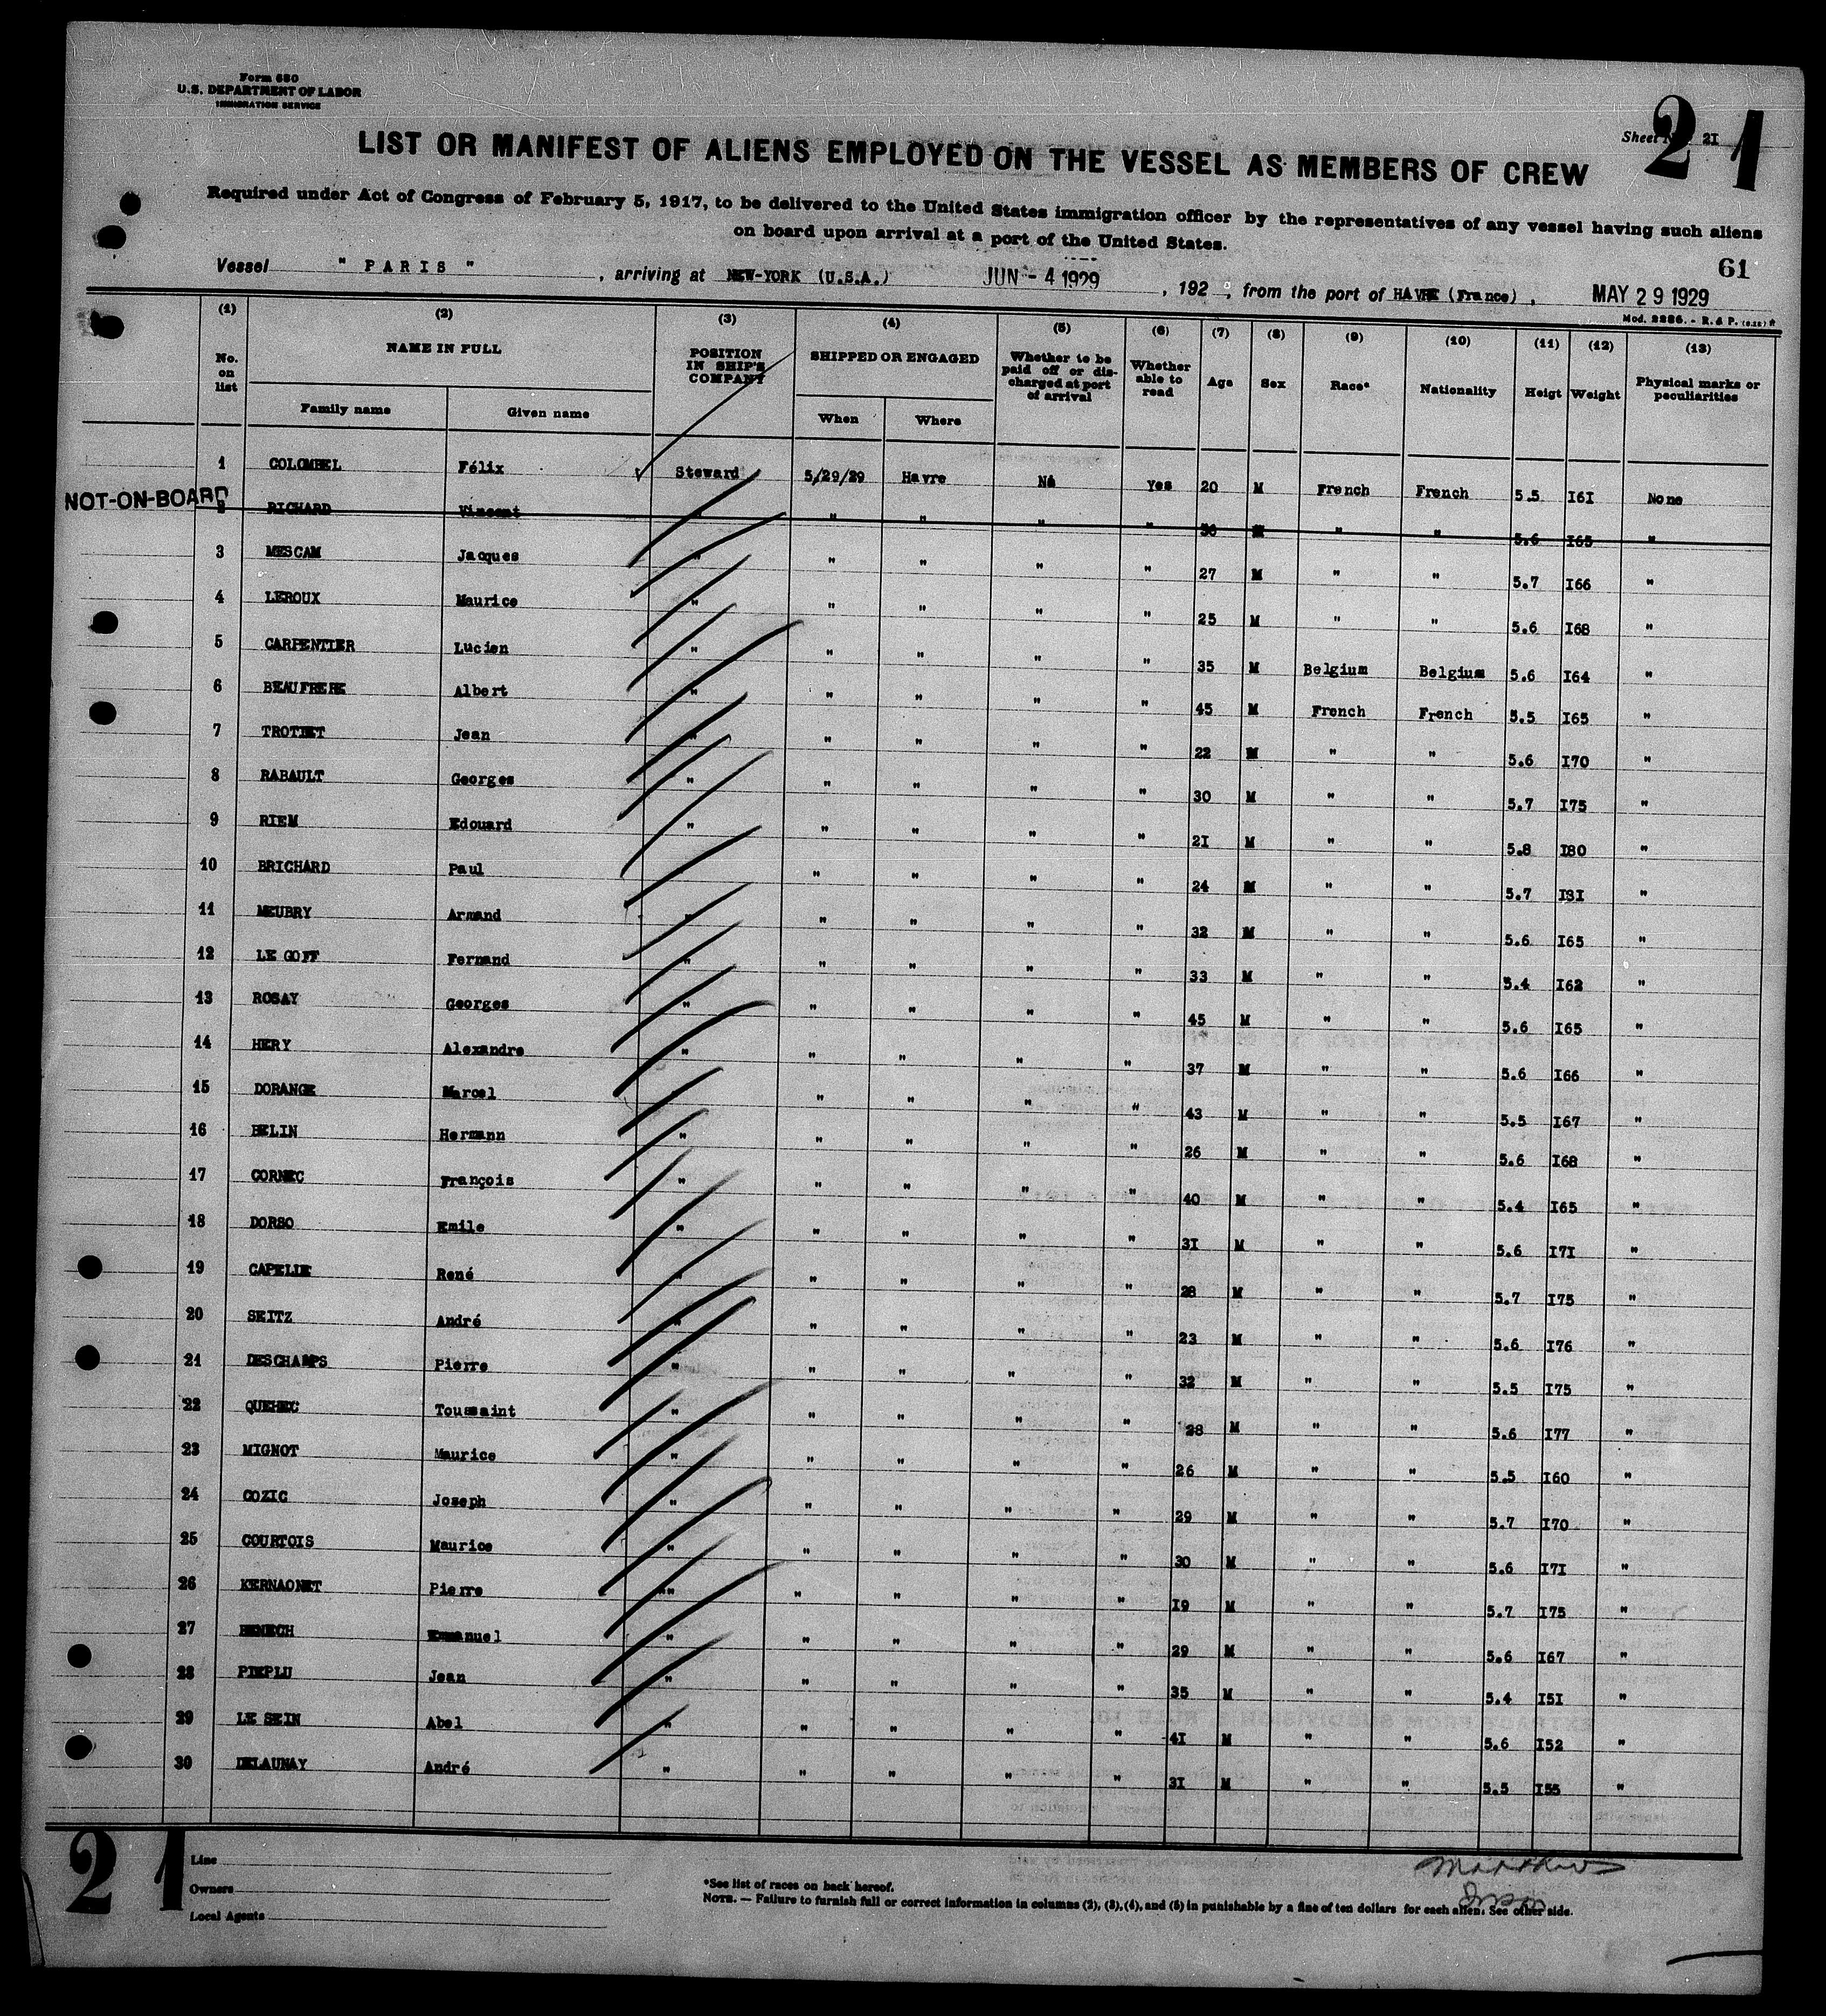 Form 680
U.S. DEPARTMENT OF LABOR
IMMIGRATION SERVICE
Sheet No. 21
21
LIST OR MANIFEST OF ALIENS EMPLOYED ON THE VESSEL AS MEMBERS OF CREW
Required under Act of Congress of February 5, 1917, to be delivered to the United States immigration officer by the representatives of any vessel having such aliens
on board upon arrival at a port of the United States.
61
Vessel " PARIS " , arriving at NEW-YORK (U.S.A.) JUN - 4 1929 , 192 , from the port of HAVRE (France) , MAY 29 1929
Mod. 2286. - R. & P.
(1) (2) (3) (4) (5) (6) (7) (8) (9) (10) (11) (12) (13)
No. on list NAME IN FULL POSITION IN SHIP'S COMPANY SHIPPED OR ENGAGED Whether to be paid off or discharged at port of arrival Whether able to read Age Sex Race* Nationality Heigt Weight Physical marks or peculiarities
Family name Given name When Where
1 COLOMBEL Félix Steward 5/29/29 Havre No Yes 20 M French French 5.5 I6I None
NOT-ON-BOARD
2 RICHARD Vincent " " " " " 30 M " " 5.6 I65 "
3 MESCAM Jacques " " " " " 27 M " " 5.7 I66 "
4 LEROUX Maurice " " " " " 25 M " " 5.6 I68 "
5 CARPENTIER Lucien " " " " " 35 M Belgium Belgium 5.6 I64 "
6 BEAUFRERE Albert " " " " " 45 M French French 5.5 I65 "
7 TROTTET Jean " " " " " 22 M " " 5.6 I70 "
8 RABAULT Georges " " " " " 30 M " " 5.7 I75 "
9 RIEM Edouard " " " " " 2I M " " 5.8 I80 "
10 BRICHARD Paul " " " " 24 M " " 5.7 I3I "
11 MEUBRY Armand " " " " " 32 M " " 5.6 I65 "
12 LE GOFF Fernand " " " " " 33 M " " 5.4 I62 "
13 ROSAY Georges " " " " " 45 M " " 5.6 I65 "
14 HERY Alexandre " " " " " 37 M " " 5.6 I66 "
15 DORANGE Marcel " " " " 43 M " " 5.5 I67 "
16 BELIN Hermann " " " " " 26 M " " 5.6 I68 "
17 CORNEC François " " " " " 40 M " " 5.4 I65 "
18 DORSO Emile " " " " " 3I M " " 5.6 I7I "
19 CAPELLE René " " " " " 28 M " " 5.7 I75 "
20 SEITZ André " " " " " 23 M " " 5.6 I76 "
21 DESCHAMPS Pierre " " " " " 32 M " " 5.5 I75 "
22 QUEHEC Toussaint " " " " " 28 M " " 5.6 I77 "
23 MIGNOT Maurice " " " " " 26 M " " 5.5 I60 "
24 COZIC Joseph " " " " " 29 M " " 5.7 I70 "
25 COURTOIS Maurice " " " " " 30 M " " 5.6 I7I "
26 KERNAONET Pierre "" " " " " I9 M " " 5.7 I75 "
27 BENECH Emmanuel " " " " " 29 M " " 5.6 I67 "
28 PIEPLU Jean " " " " " 35 M " " 5.4 I5I "
29 LE SEIN Abel " " " " " 4I M " " 5.6 I52 "
30 DELAUNAY André " " " " " 3I M " " 5.5 I55 "
21
Line
Owners
Local Agents
*See list of races on back hereof.
NOTE. — Failure to furnish full or correct information in columns (2), (3), (4), and (5) in punishable by a fine of ten dollars for each alien. See other side.